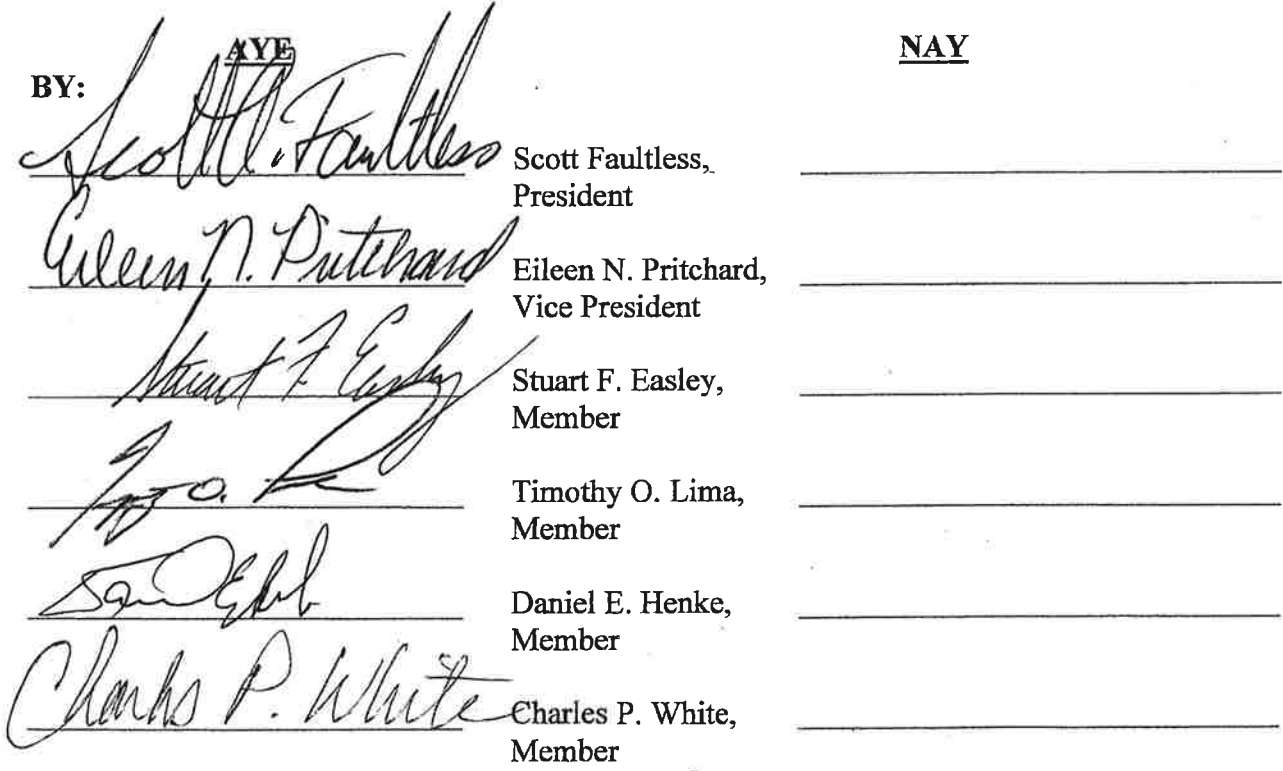 AYE NAY
BY:
Scott A. Faultless Scott Faultless,
President
Eileen N. Pritchard Eileen N. Pritchard,
Vice President
Stuart F. Easley Stuart F. Easley,
Member
Timothy O. Lima,
Member
Daniel E. Henke,
Member
Charles P. White Charles P. White,
Member